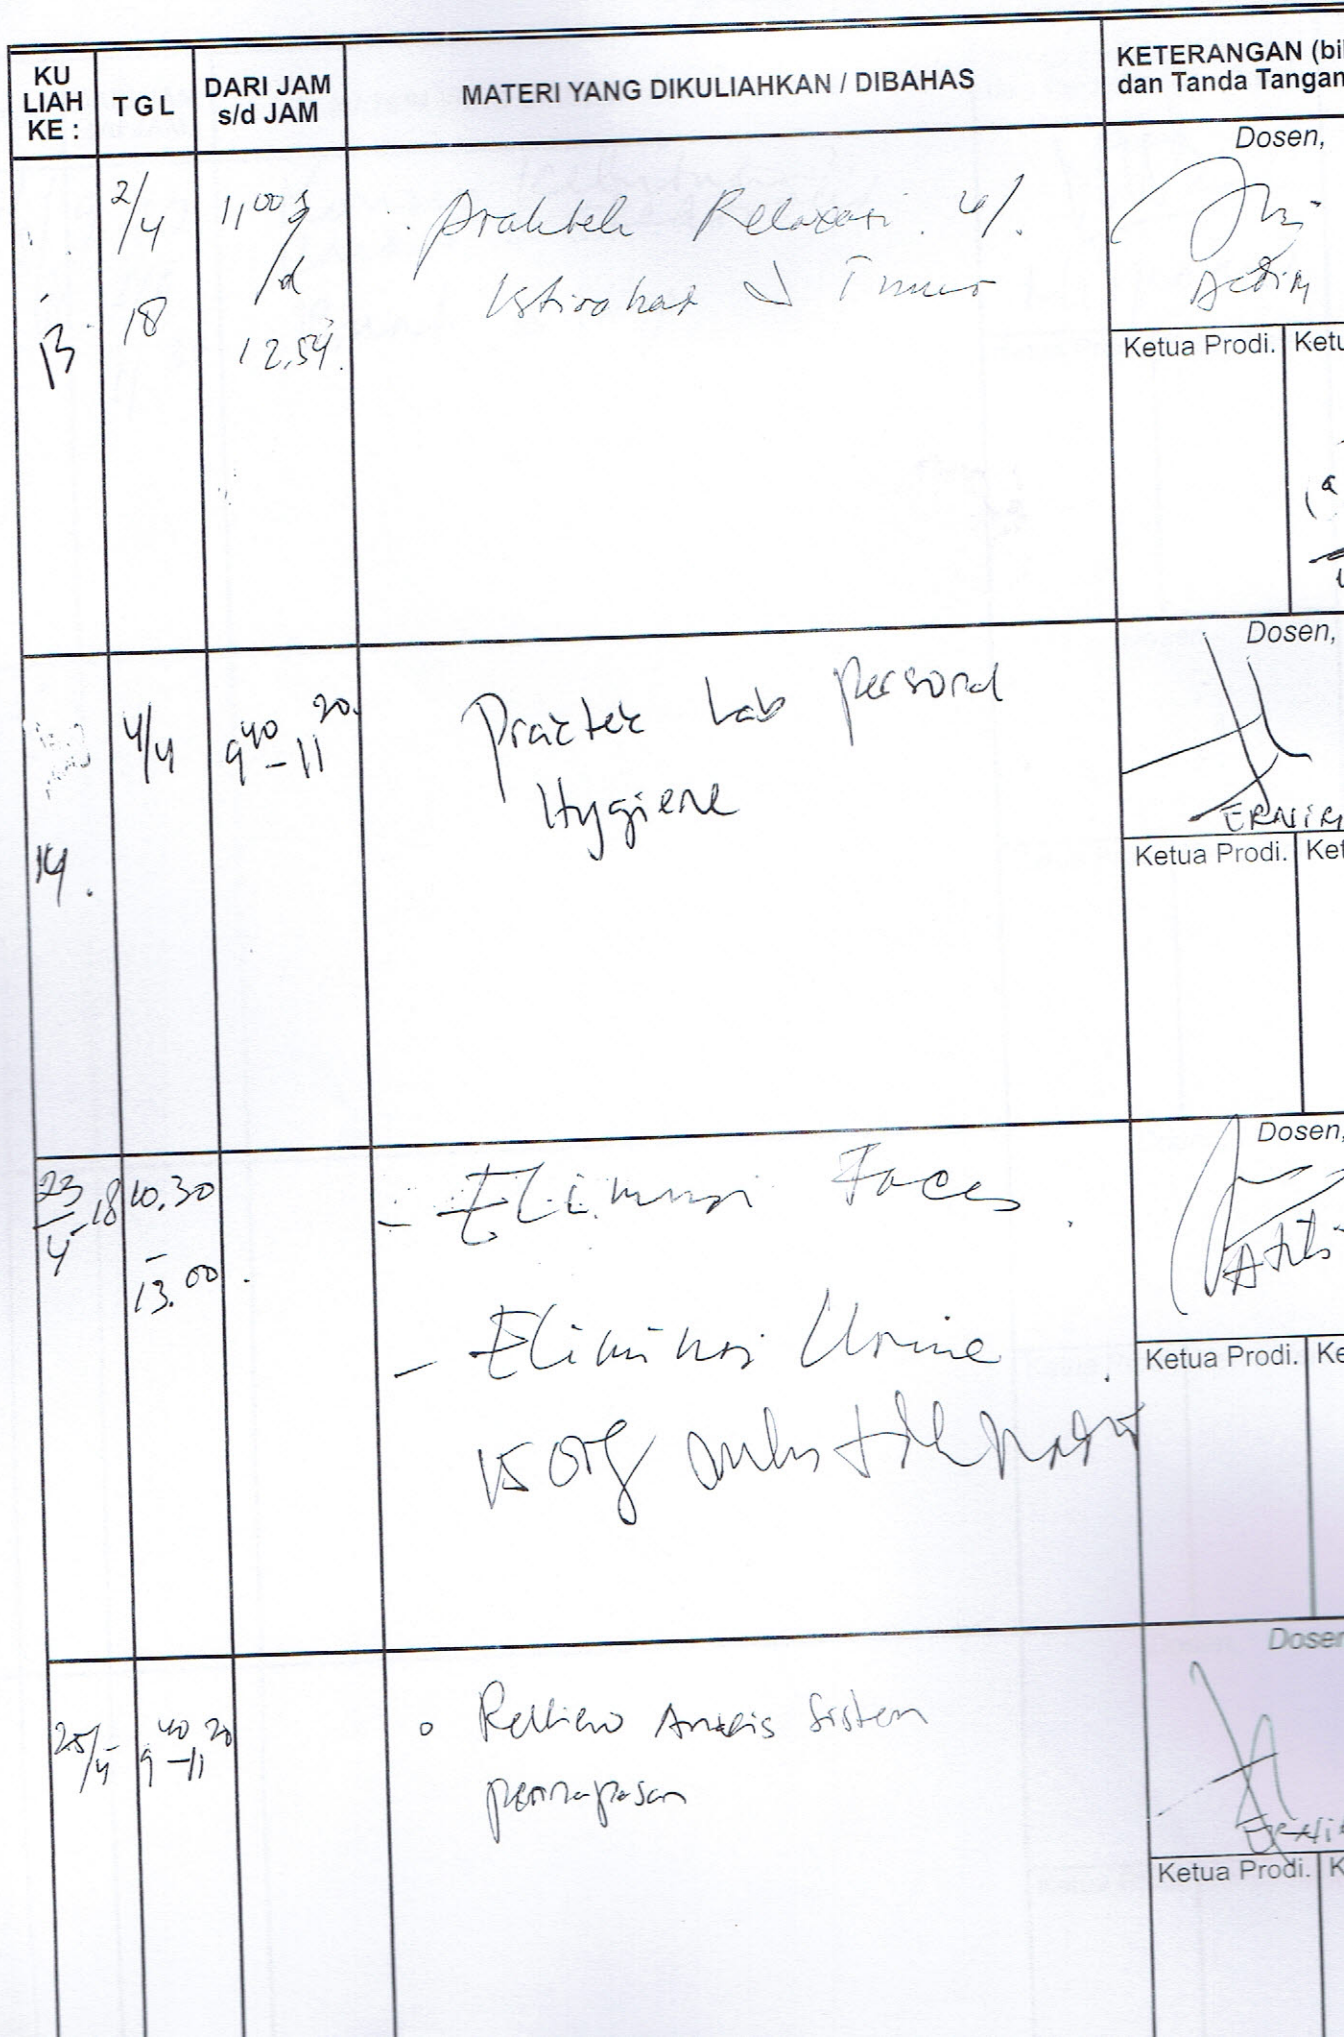 KU
LIAH
KE :
T G L
DARI JAM
s/d JAM
MATERI YANG DIKULIAHKAN / DIBAHAS
KETERANGAN (bil
dan Tanda Tangan
13
2/4
18
11,00 s
/d
12.54.
Praktek Relaxasi u/.
Istirahat Tidur
Dosen,
Ketua Prodi.
Ketu
14.
4/4
9 40 - 11 20
Praktek Lab personal
Hygiene
Dosen,
ERNIR
Ketua Prodi.
Ket
23/4-18
10.30
-
13.00
- Eliminasi Faces
- Eliminasi Urine
15 org
Dosen,
Ketua Prodi.
Ke
25/4
9 40 - 11 20
Sistem
pernapasan
Dosen
ERNI
Ketua Prodi.
K